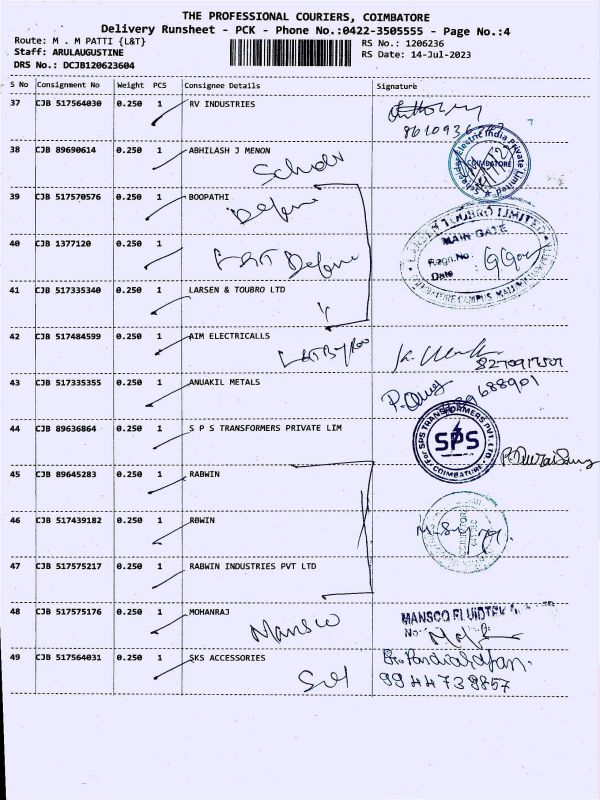 THE PROFESSIONAL COURIERS, COIMBATORE
Delivery Runsheet - PCK - Phone No.:0422-3505555 - Page No.:4
Route: M . M PATTI {L&T}
RS No.: 1206236
Staff: ARULAUGUSTINE
RS Date: 14-Jul-2023
DRS No.: DCJB120623604
S No Consignment No Weight PCS Consignee Details Signature
37 CJB 517564030 0.250 1 RV INDUSTRIES
38 CJB 89690614 0.250 1 ABHILASH J MENON
Electric India Private Limited
COIMBATORE
39 CJB 517570576 0.250 1 BOOPATHI
Defence
TOUBRO LIMITED
MAIN GATE
Regn.No.
Date
40 CJB 1377120 0.250 1
L&T Defence
41 CJB 517335340 0.250 1 LARSEN & TOUBRO LTD
42 CJB 517484599 0.250 1 AIM ELECTRICALLS
43 CJB 517335355 0.250 1 ANUAKIL METALS
688901
44 CJB 89636864 0.250 1 S P S TRANSFORMERS PRIVATE LIM
For SPS TRANSFORMERS PVT. LTD
SPS
COIMBATORE
45 CJB 89645283 0.250 1 RABWIN
46 CJB 517439182 0.250 1 RBWIN
47 CJB 517575217 0.250 1 RABWIN INDUSTRIES PVT LTD
48 CJB 517575176 0.250 1 MOHANRAJ
Mansco
MANSCO FLUIDTEK
49 CJB 517564031 0.250 1 SKS ACCESSORIES
9944739857